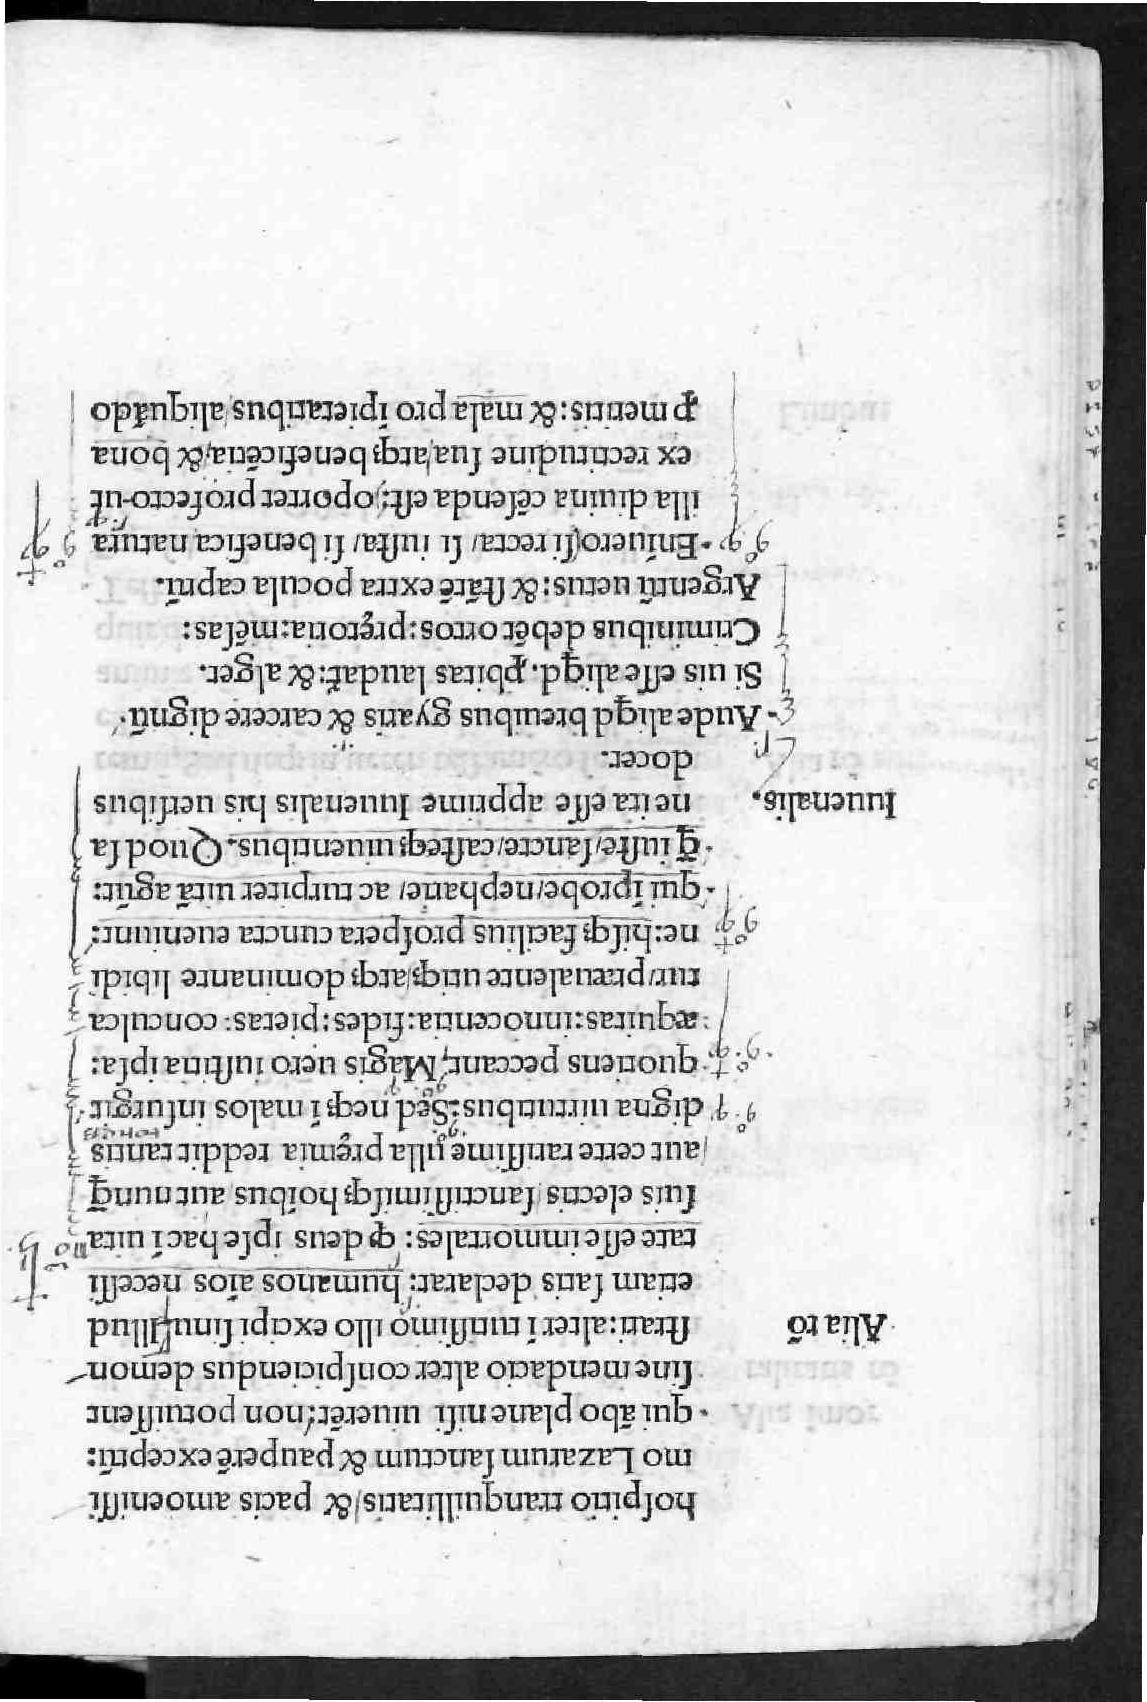 hoſpitio tranquillitatis/& pacis amoeniſſi
mo Lazarum ſanctum & pauperē exceptū:
qui abo plane niſi uiuerēt; non potuiſſent
ſine mendatio alter conſpiciendus demon
Alia rō
ſtrari: alter ī mitiſſimo illo excipi ſinu. Illud
etiam ſatis declarat: humanos aīos neceſſi
tate eſſe immortales: ꝙ deus ipſe hac ī uita
ſuis electis/ſanctiſſimiſqꝫ hoībus aut nunꝗ̃
aut certe tardiſſime ulla p̄remia reddit tantis
digna uirtutibus: Sed neqꝫ ī malos inſurgit
quotiens peccant; Magis uero iuſtitia ipſa:
æquitas: innocentia: fides: pietas: conculca
tur/præualente uitiqꝫ/atqꝫ dominante libidī
ne: hiſqꝫ facilius proſpera cuncta eueniunt:
qui īprobe/nephane/ac turpiter uitā agūt:
ꝗ̃ iuſte/ſancte/caſteqꝫ uiuentibus. Quod ſa
Iuuenalis.
ne ita eſſe apprime Iuuenalis his uerſibus
docet.
Aude aliꝗd breuibus gyaris & carcere dignū.
Si uis eſſe aliꝗd. ꝓbitas laudat̄: & alget.
Criminibus debēt ortos: prętoria: mēſas:
Argentū uetus: & ſtātē extra pocula caprū.
Enīuero/ſi recta/ ſi iuſta/ ſi benefica natura
illa diuina cēſenda eſt; oportet profecto ut
ex rectitudine ſua/atqꝫ beneficētia/& bona
ꝓ meritis: & mala pro īpietatibus aliquādo